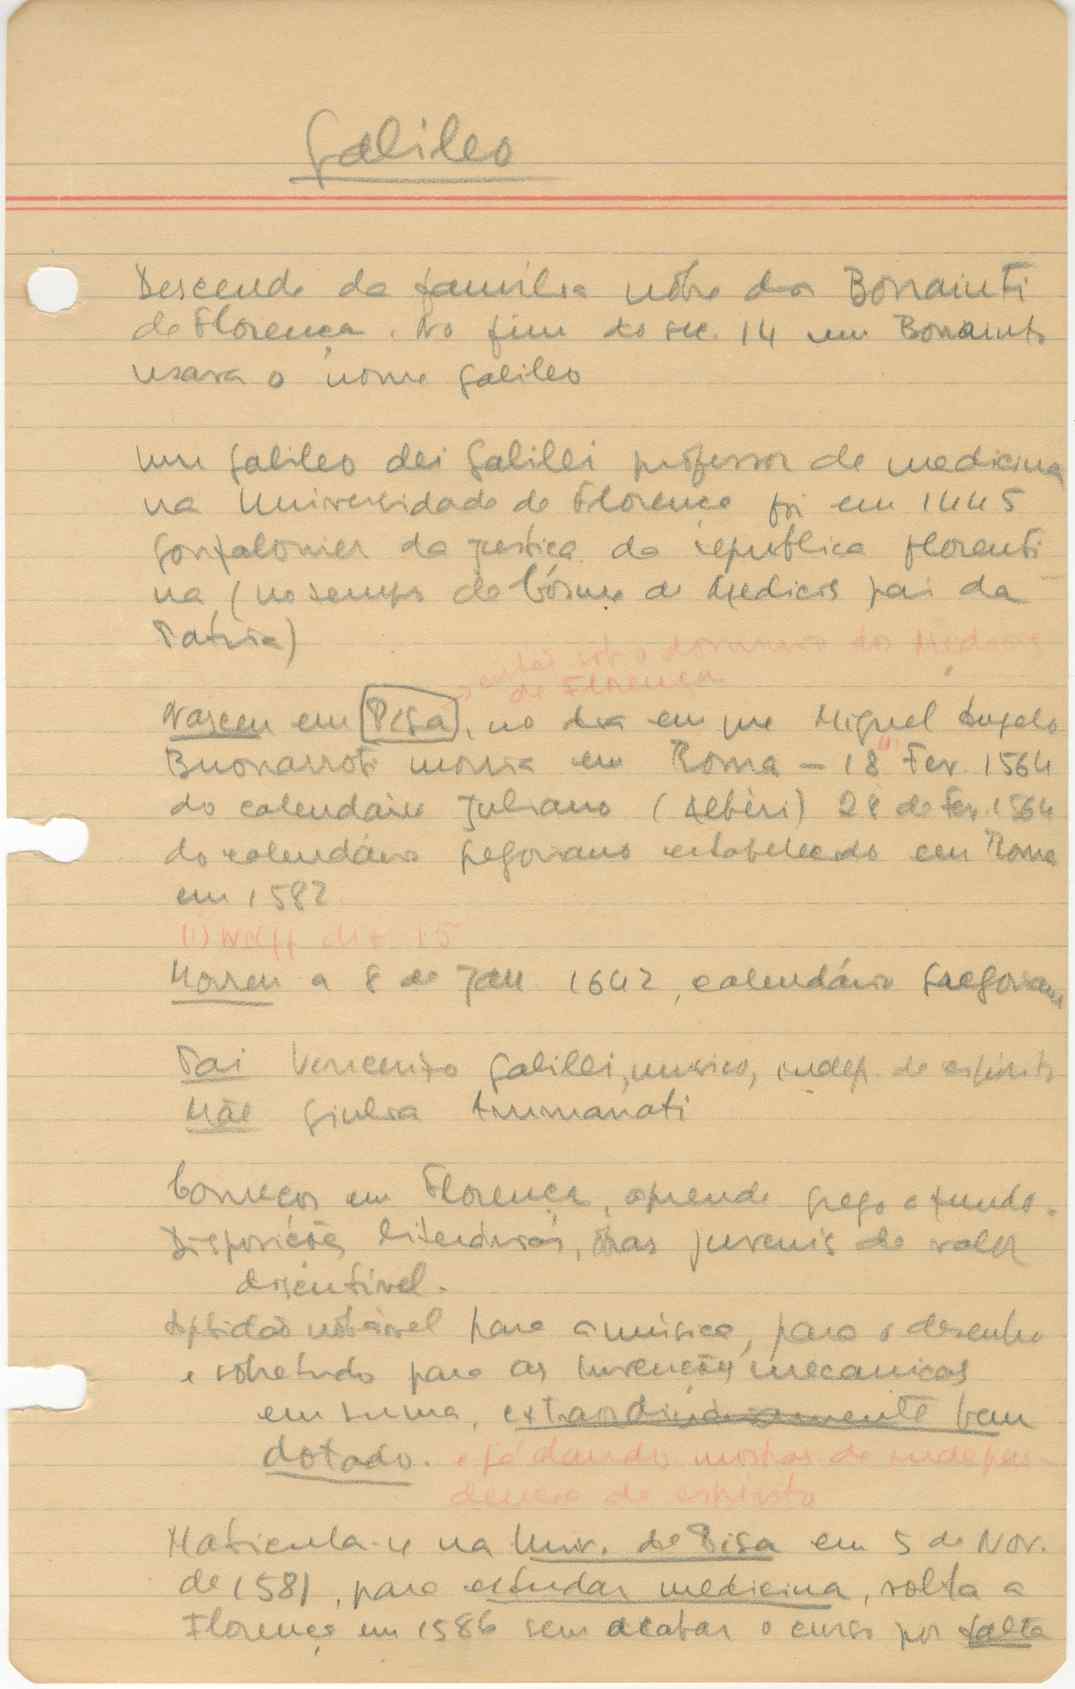 Galileo
Descende da família nobre dos Bonaiuti
de Florença. No fim do sec. 14 um Bonaiuto
usara o nome Galileo
Um Galileo dei Galilei professor de medicina
na Universidade de Florença foi em 1445
Gonfalonier da justiça da republica florenti
na, (no tempo de Cósme de Medicis pai da
Patria)
então sob o dominio dos Medicis
de Florença
Nasceu em Pisa, no dia em que Miguel Angelo
Buonarroti morria em Roma – 18 (1) Fev. 1564
do calendário Juliano (Albèri) 28 de Fev. 1564
do calendário gregoriano estabelecido em Roma
em 1582
(1) Wolff diz 15
Morreu a 8 de Jan 1642, calendário Gregoriano
Pai Vencenzo Galilli, musico, indep. de espirito
Mãe Giulia Ammanati
Começos em Florença, aprende grego a fundo.
Disposições literárias, mas juvenis de valor
discutivel.
Aptidão notável para a música, para o desenho
e sobretudo para as invenções mecanicas
em suma, extraordináriamente bem
dotado. e já dando mostras de indepen-
dencia de espirito
Matricula-se na Univ. de Pisa em 5 de Nov.
de 1581, para estudar medicina, volta a
Florença em 1586 sem acabar o curso por falta